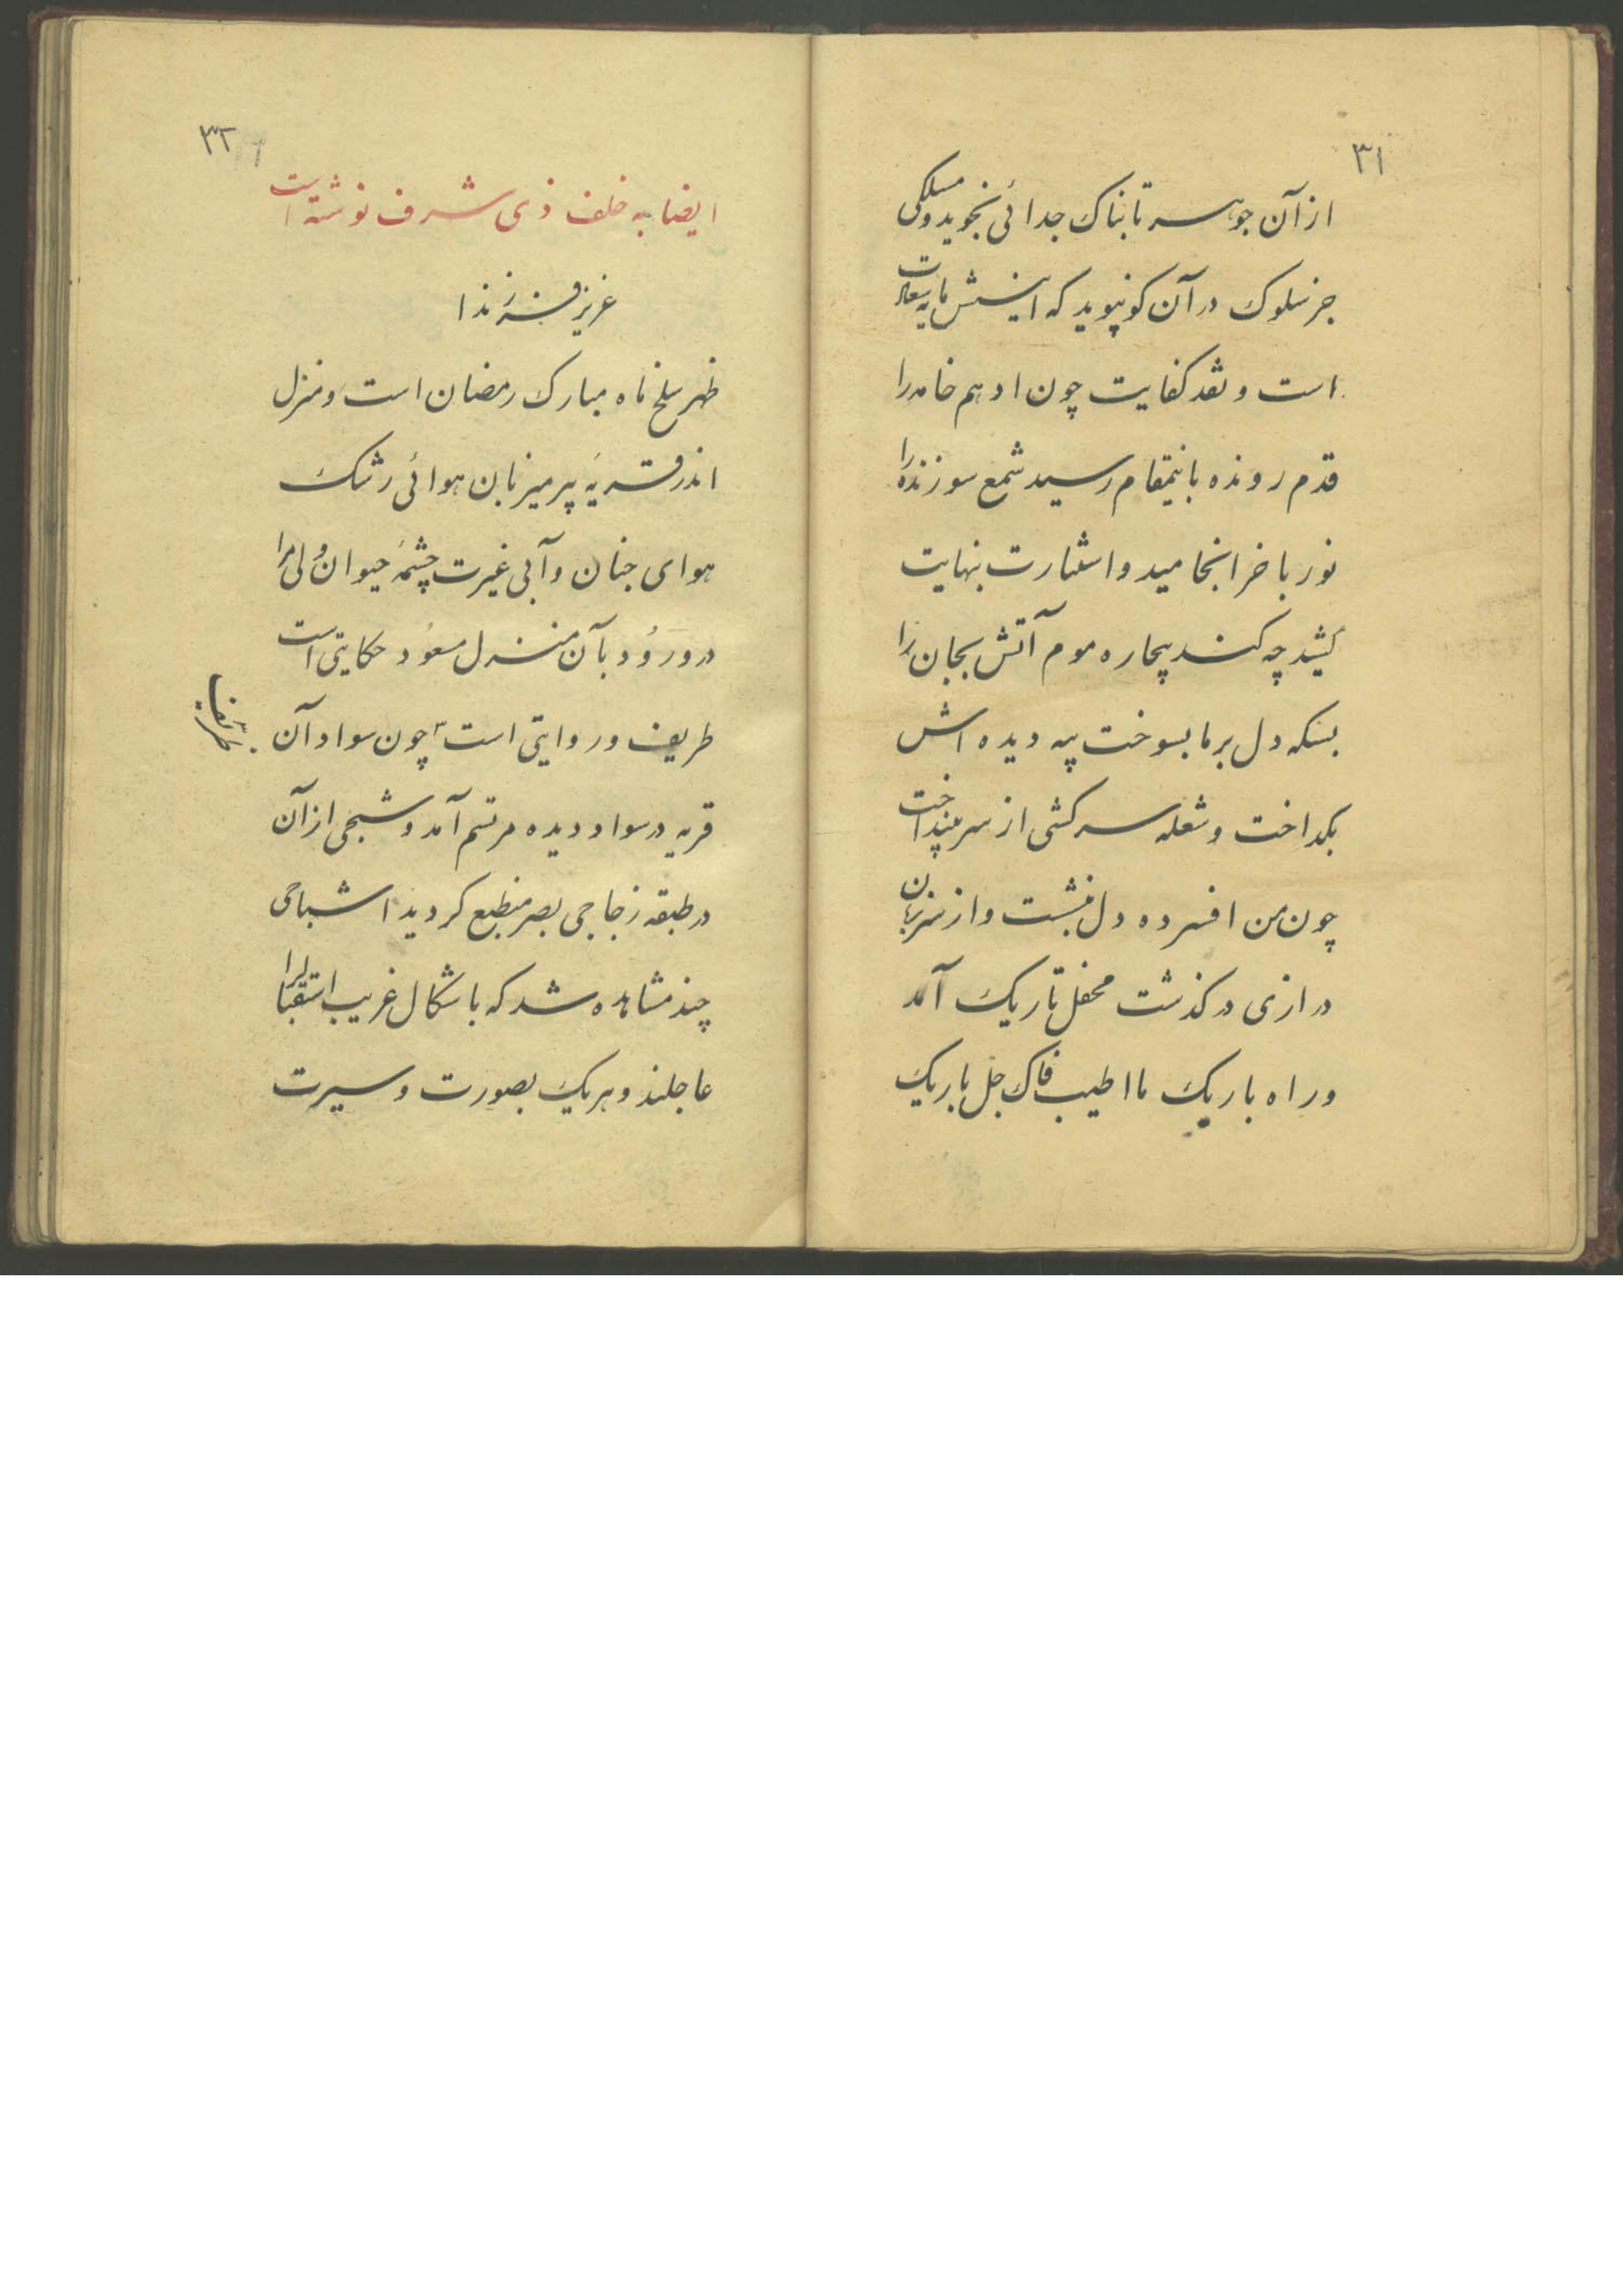 ۳۱
از آن جوهر تابناک جدائی نجوید و مسلکی
جز سلوک در آن کو نپوید که اینش مایه سعادت
است و نقد کفایت چون ادهم خامه را
قدم رونده باینمقام رسید شمع سوزنده را
نور باخر انجامید و اشارت بنهایت
کشید چه کند بیچاره موم آتش بجان را
بسکه دل بر ما بسوخت پیه دیده اش
بگداخت و شعله سرکشی از سر بینداخت
چون من افسرده دل بنشست و از سر زبان
درازی درگذشت محفل تاریک آمد
و راه باریک ما اطیب فاک جل باریک
۳۲
ایضا به خلف ذی شرف نوشته است
عزیز فرزندا
ظهر سلخ ماه مبارک رمضان است و منزل
اندر قریهٔ پیر میزبان هوائی رشک
هوای جنان و آبی غیرت چشمهٔ حیوان ولی مرا
در ورود بآن منزل مسعود حکایتی است
طریف و روایتی است چون سواد آن
ظریف
قریه در سواد دیده مرتسم آمد و شبحی از آن
در طبقه زجاجی بصر منطبع گردید اشباحی
چند مشاهده شد که باشکال غریب استقبال را
عاجلند و هر یک بصورت و سیرت